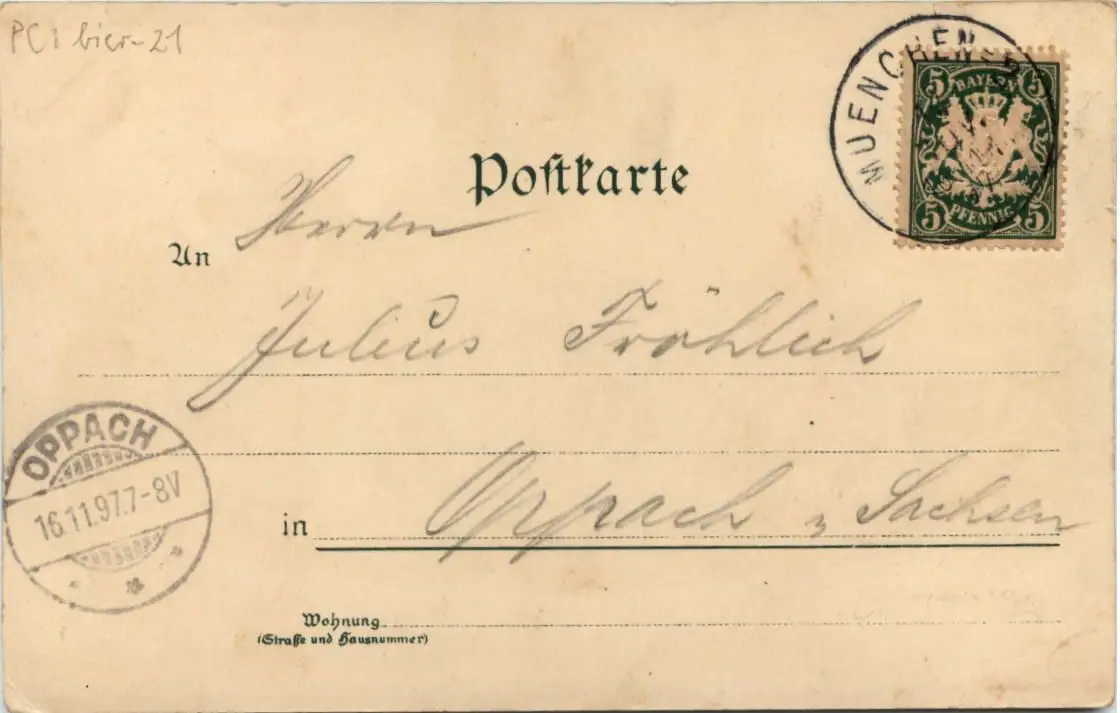 PC: bier-21
MUENCHEN
5 BAYERN 5
5 PFENNIG 5
Postkarte
Herrn
An
Julius Fröhlich
OPPACH
16.11.97.7-8V
in Oppach Sachsen
Wohnung
(Straße und Hausnummer)